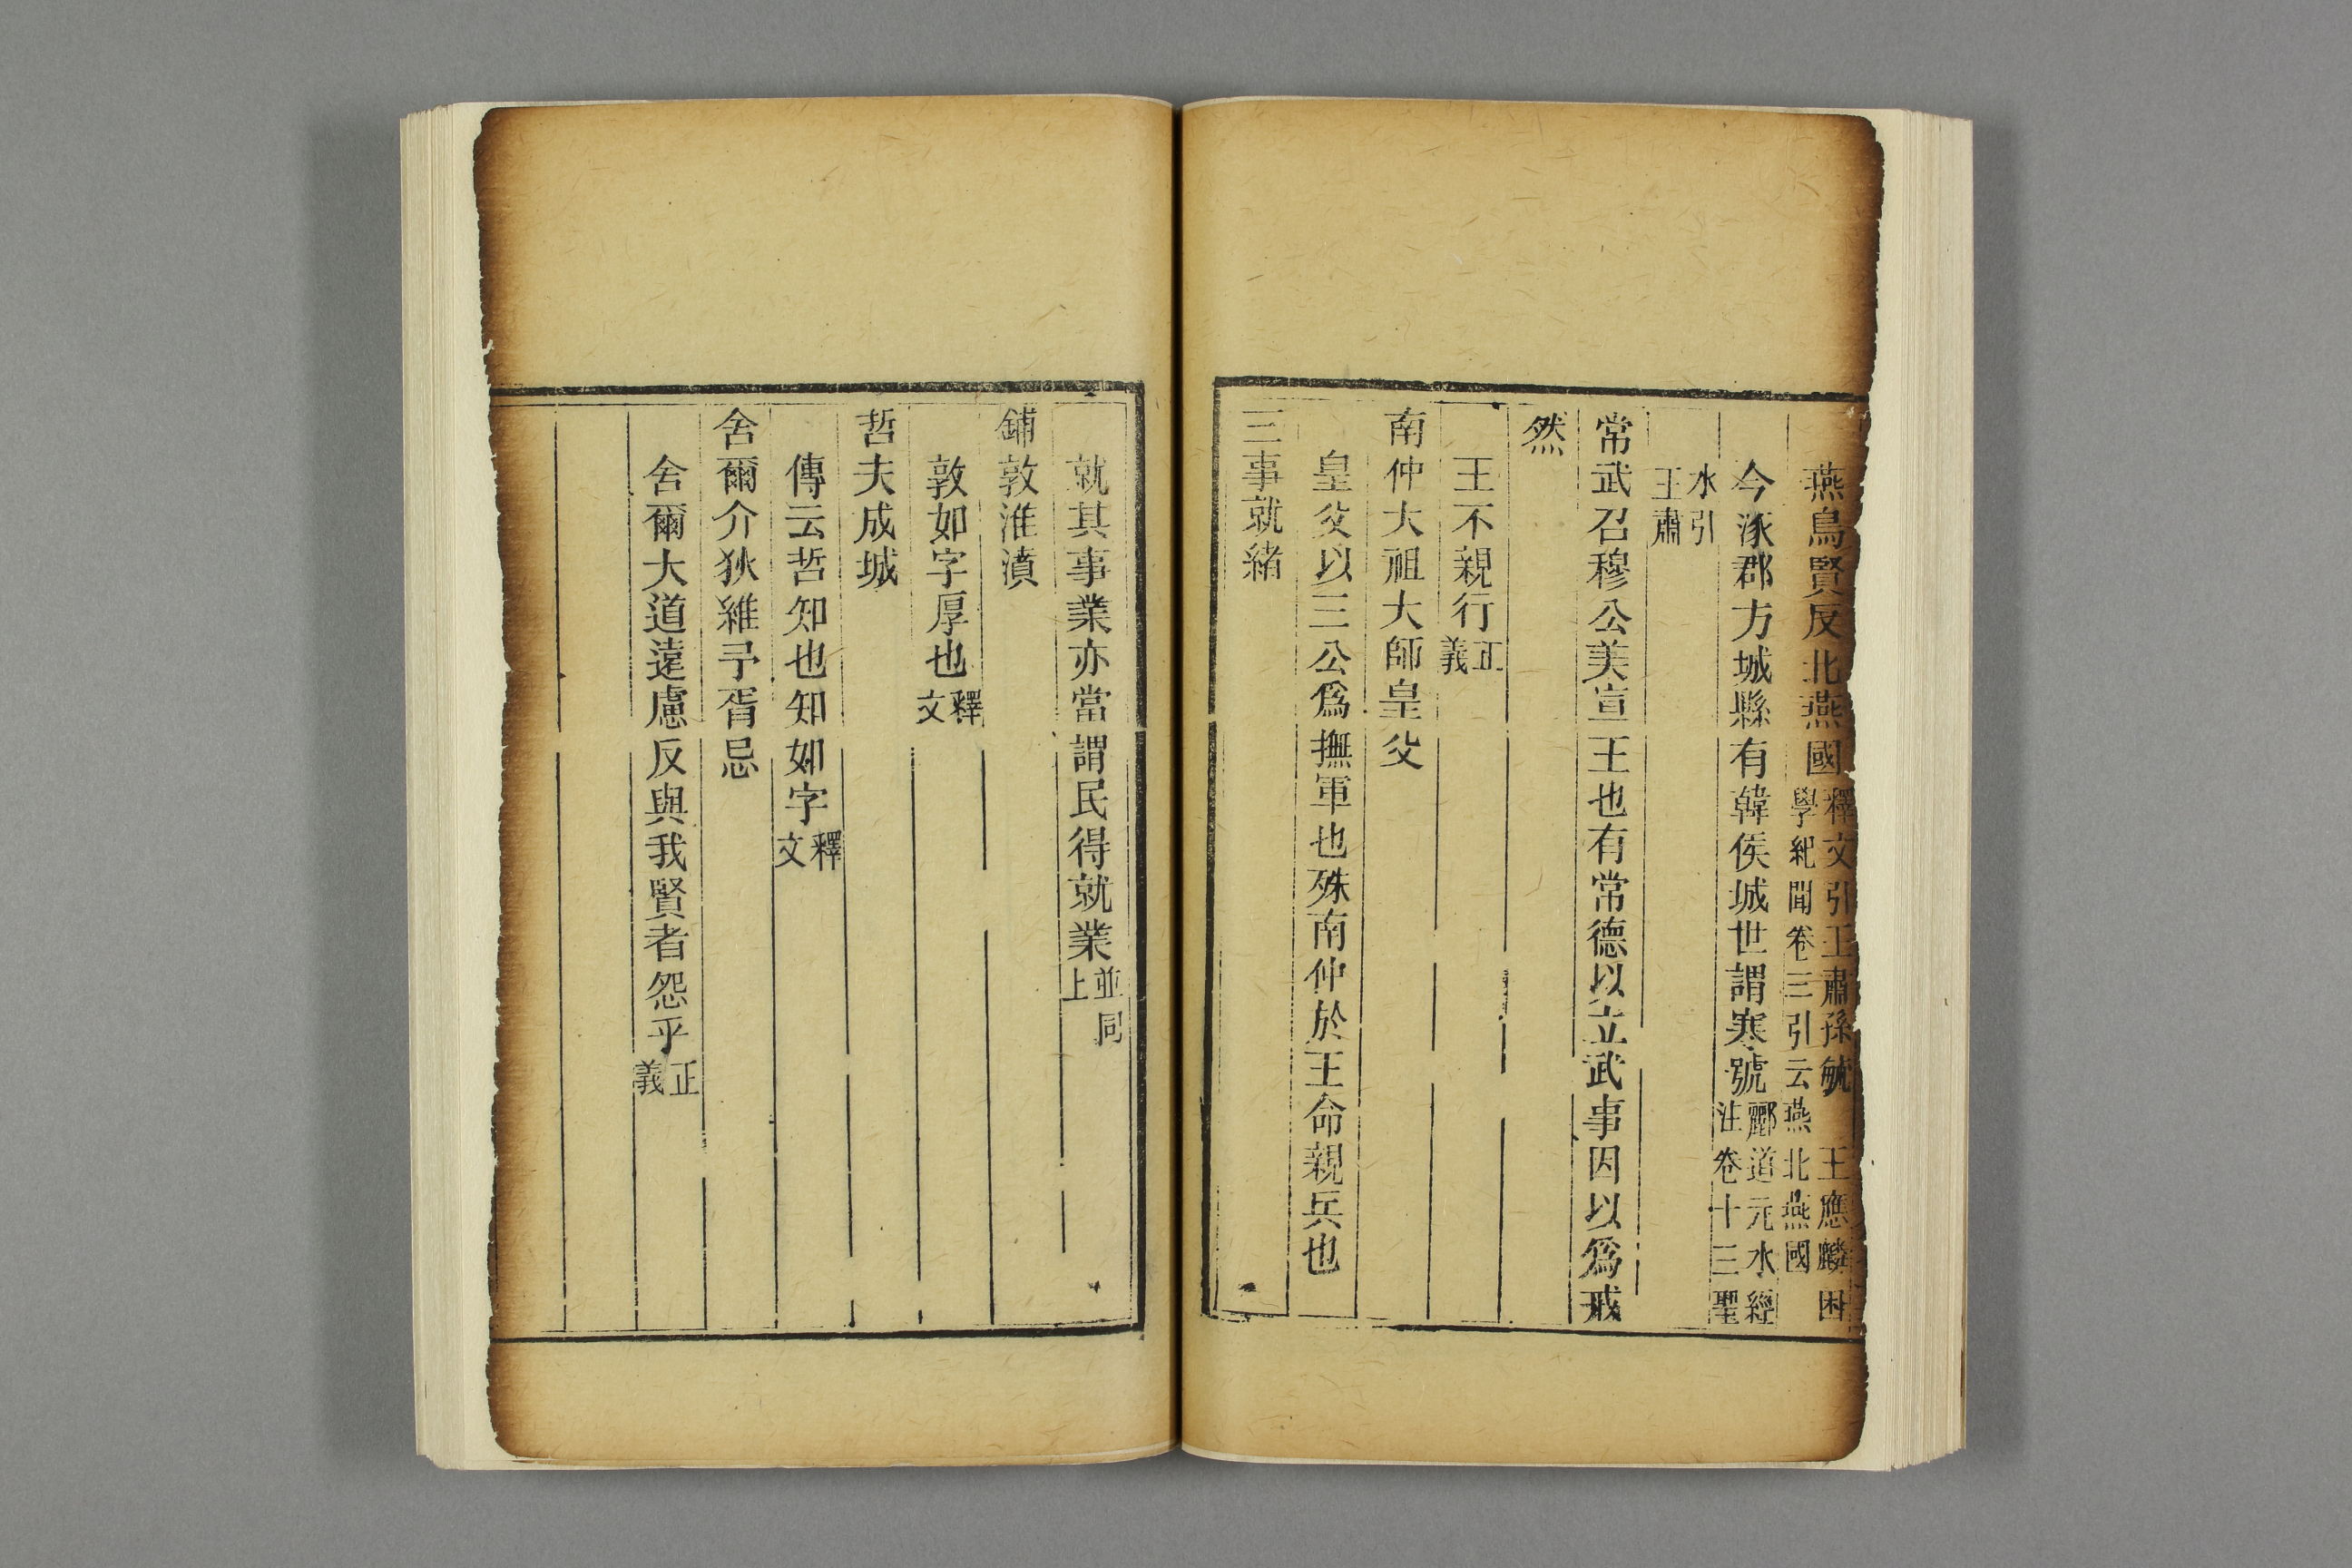 燕烏賢反北燕國釋文引王肅孫毓 王應麟困學紀聞卷三引云燕北燕國
今涿郡方城縣有韓侯城世謂寒號酈道元水經注卷十三聖
水引王肅
常武召穆公美宣王也有常德以立武事因以爲戒
然
王不親行正義
南仲大祖大師皇父
皇父以三公爲撫軍也殊南仲於王命親兵也
三事就緒
就其事業亦當謂民得就業並同上
鋪敦淮濆
敦如字厚也釋文
哲夫成城
傳云哲知也知如字釋文
舍爾介狄維予胥忌
舍爾大道遠慮反與我賢者怨乎正義